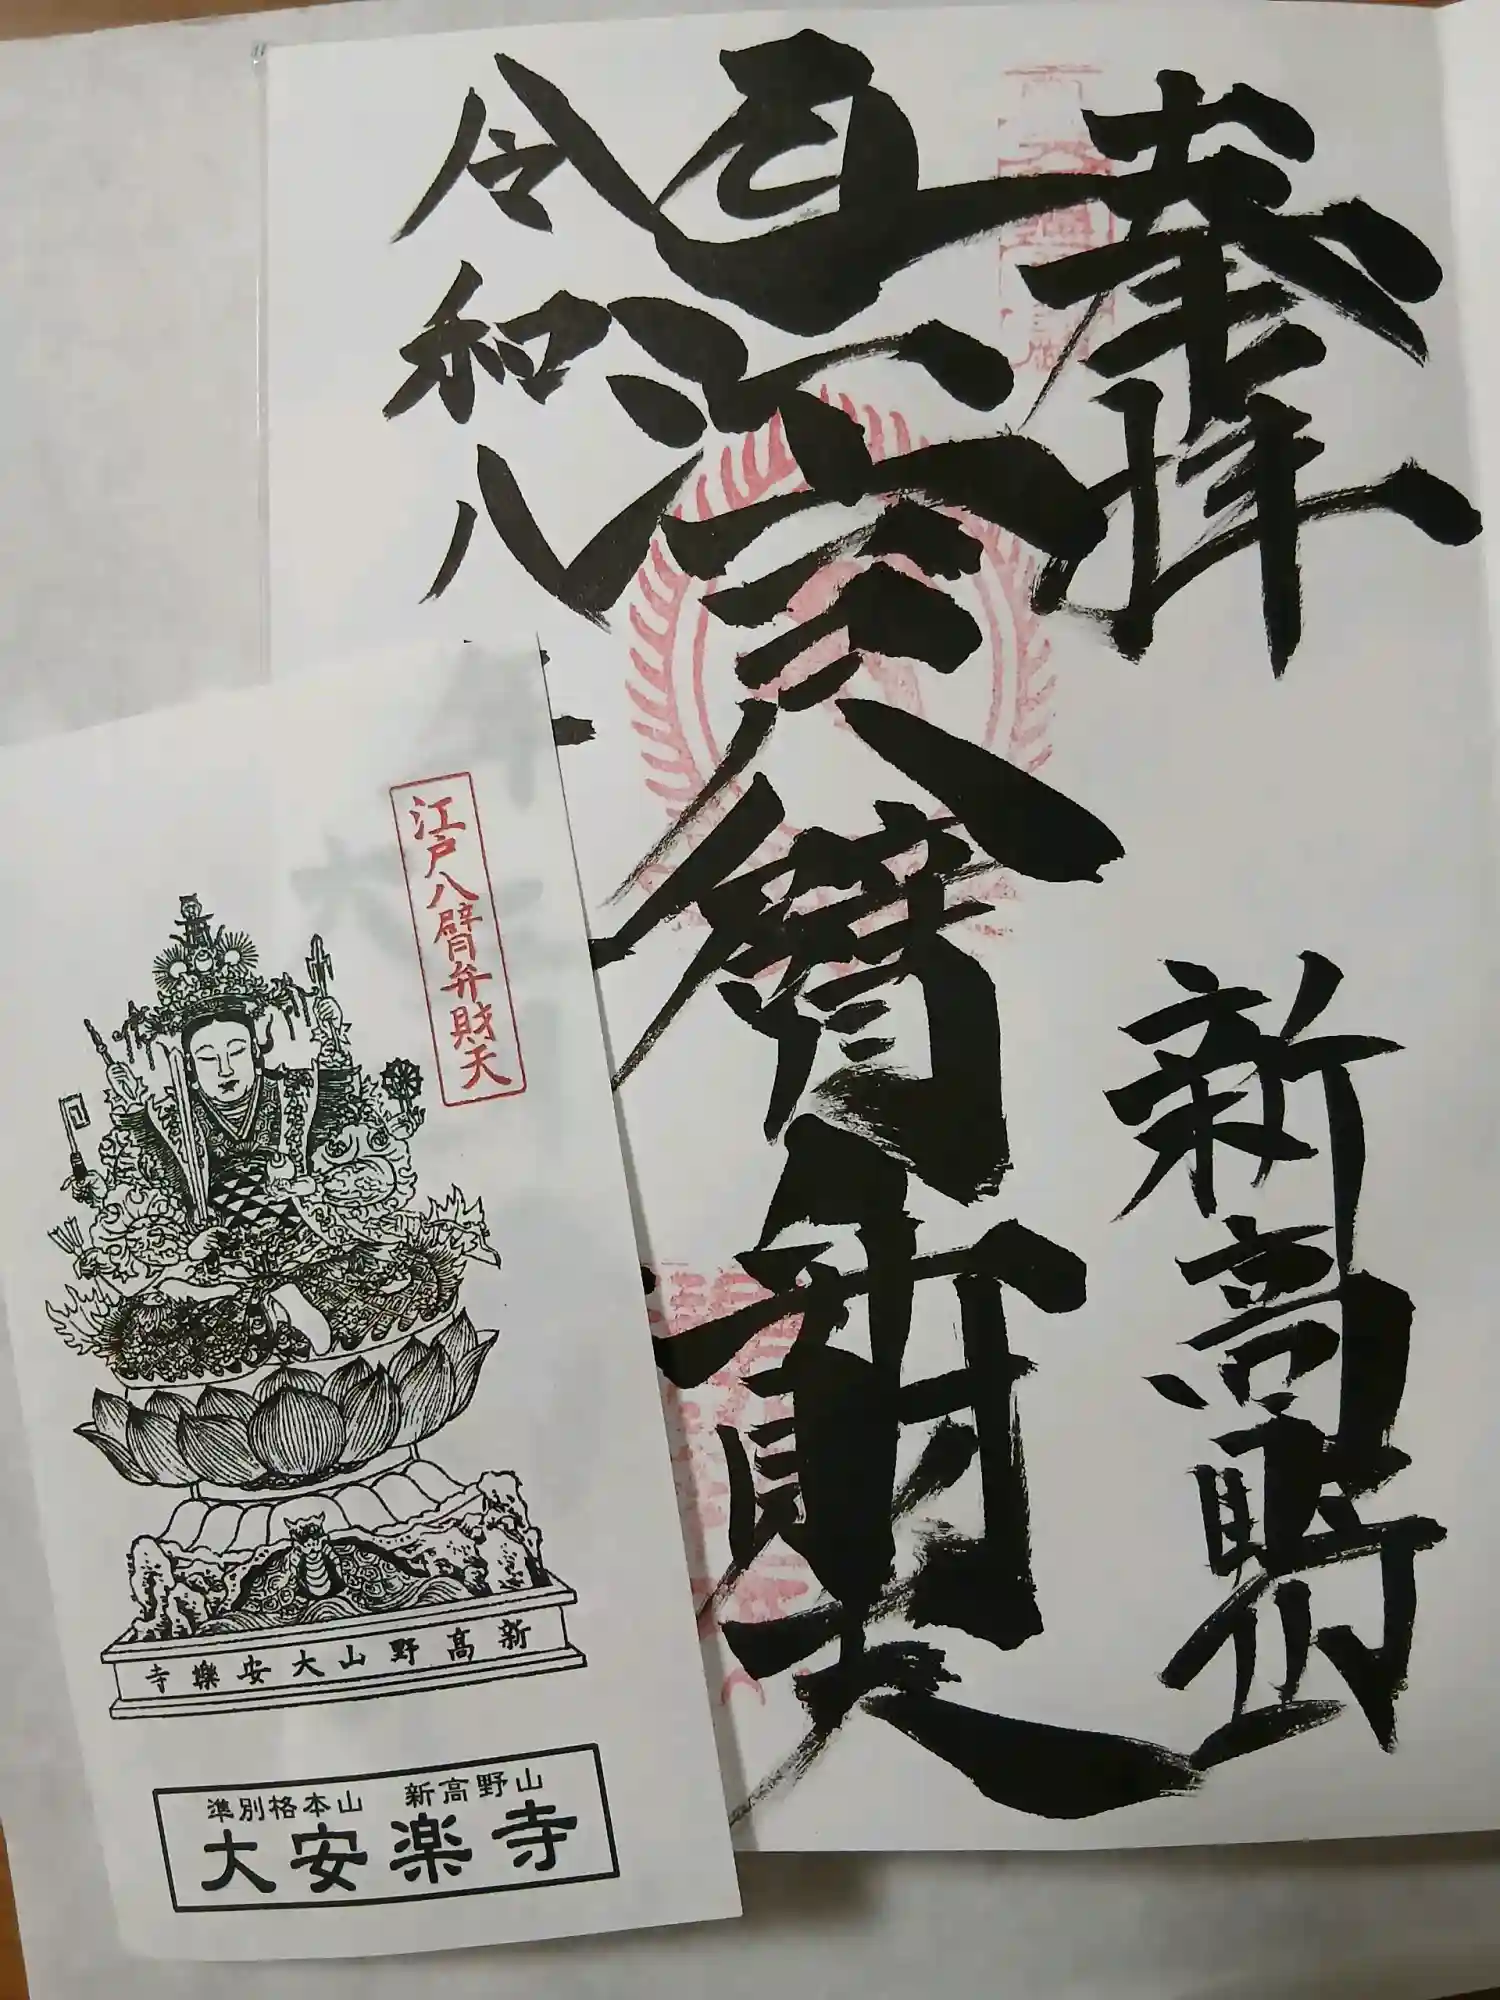 奉拝　新高野山
八臂弁財天
令和八
江戸八臂弁財天
新高野山大安樂寺
準別格本山　新高野山
大安楽寺